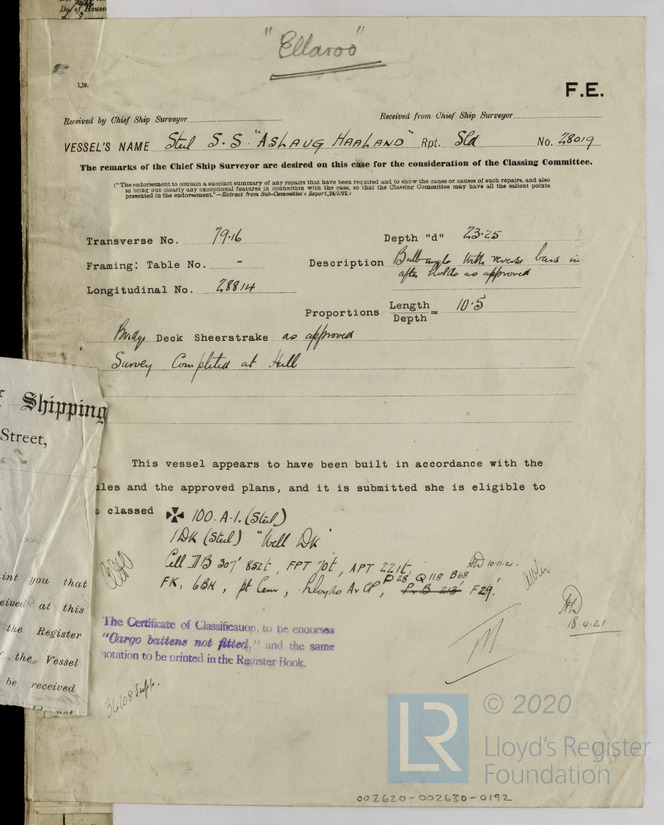 "Ellaroo"
F.E.
Received by Chief Ship Surveyor
Received from Chief Ship Surveyor
VESSEL'S NAME Steel S.S. "ASLAUG HAALAND" Rpt. Sld No. 28019
The remarks of the Chief Ship Surveyor are desired on this case for the consideration of the Classing Committee.
("The endorsement to contain a succinct summary of any repairs that have been required and to show the cause or causes of such repairs, and also
to bring out clearly any exceptional features in connection with the case, so that the Classing Committee may have all the salient points
presented in the endorsement."—Extract from Sub-Committee's Report, 24/5/92.)
Transverse No. 79.16
Depth "d" 23.25
Framing: Table No. -
Description Bulb angle with reverse bars in
after holds as approved
Longitudinal No. 28814
Proportions Length
Depth = 10.5
Bridge Deck Sheerstrake as approved
Survey Completed at Hull
Shipping
Street,
This vessel appears to have been built in accordance with the
ules and the approved plans, and it is submitted she is eligible to
classed 100.A.1. (Steel)
1 Dk (Steel) "Well Dk"
Cell DB 307' 862t, FPT 70t, APT 221t,
P 28 Q 118 B 68
10.11.21
FK, 6BH, pt Cem, Lloyds A & CP, P.B 213 F 29.
18.4.21
int you that
eived at this
the Register
the Vessel
be received
The Certificate of Classification, to be endorsed
"Cargo battens not fitted," and the same
notation to be printed in the Register Book.
© 2020
LR
Lloyd's Register
Foundation
002620-002630-0192